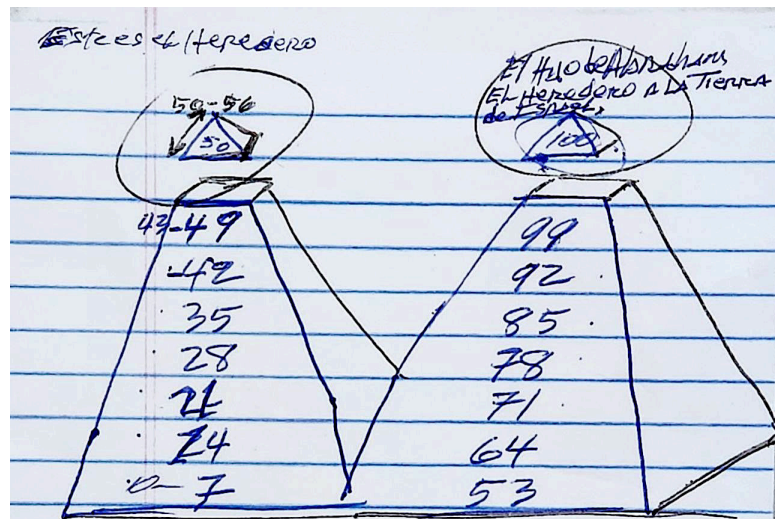 Este es el Heredero
50-56
50
43-49
-42
35
28
21
14
0-7
El Hijo de Abraham,
EL Heredero A LA TIERRA
de Israel,
100
99
92
85
78
71
64
53